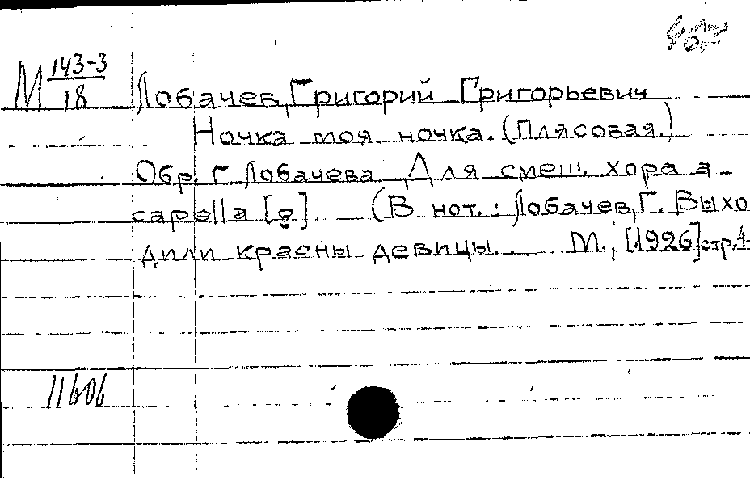 М 143-3
18
Лобачев, Григорий Григорьевич
Ночка моя ночка. (Плясовая.)
Обр. Г. Лобачева. Для смеш. хора а-
capella [2]. (В нот.: Лобачев, Г. Выхо
дили красны девицы. М., [1926] стр.
11606